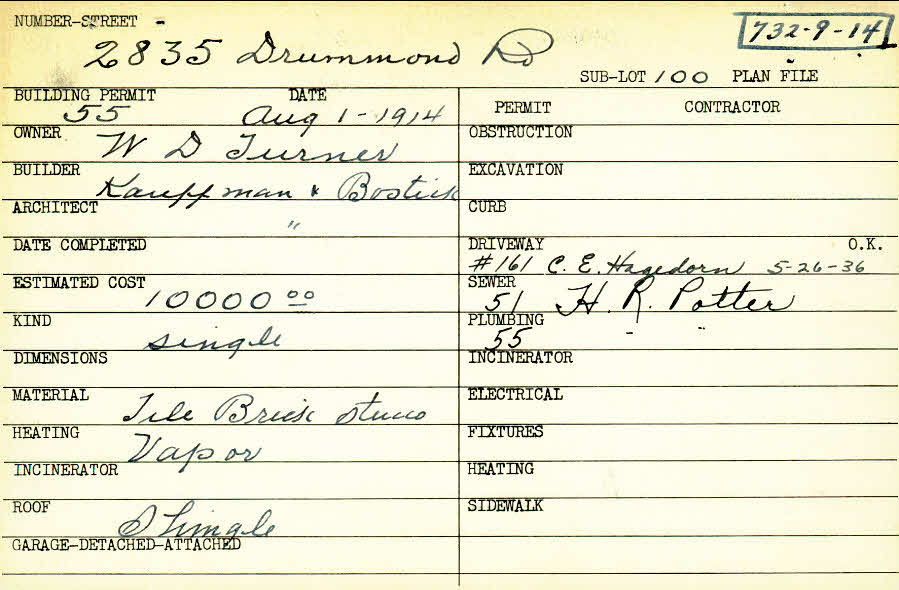 NUMBER-STREET -
2835 Drummond Rd
732-9-14
SUB-LOT 100 PLAN FILE
BUILDING PERMIT DATE
55 Aug 1-1914
OWNER W D Turner
BUILDER Kauffman & Bostick
ARCHITECT "
DATE COMPLETED
ESTIMATED COST
10000 00
KIND
single
DIMENSIONS
MATERIAL Tile Brick Stucco
HEATING Vapor
INCINERATOR
ROOF Shingle
GARAGE-DETACHED-ATTACHED
PERMIT CONTRACTOR
OBSTRUCTION
EXCAVATION
CURB
DRIVEWAY O.K.
#161 C. E. Hagedorn 5-26-36
SEWER
51 H. R. Potter
PLUMBING - "
55
INCINERATOR
ELECTRICAL
FIXTURES
HEATING
SIDEWALK